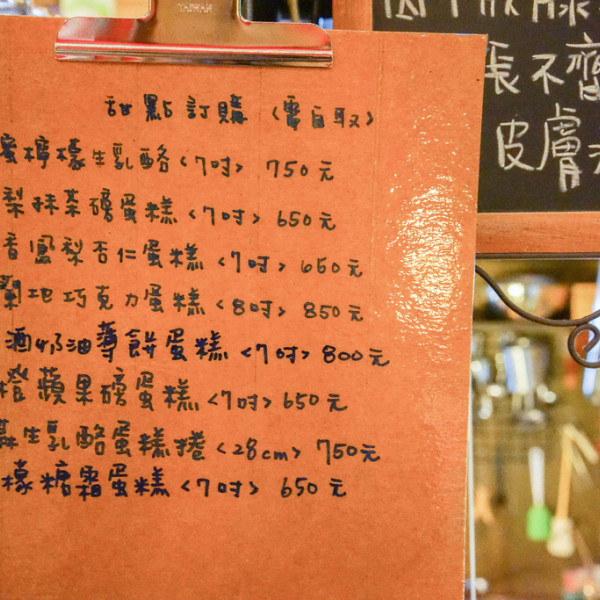 TAIWAN
甜點訂購 (需自取)
蜜檸檬生乳酪 <7吋> 750元
梨抹茶磅蛋糕 <7吋> 650元
香鳳梨杏仁蛋糕 <7吋> 650元
蘭地巧克力蛋糕 <8吋> 850元
酒奶油薄餅蛋糕 <7吋> 800元
橙蘋果磅蛋糕 <7吋> 650元
生乳酪蛋糕捲 <28cm> 750元
檬糖霜蛋糕 <7吋> 650元
張不齊
皮膚